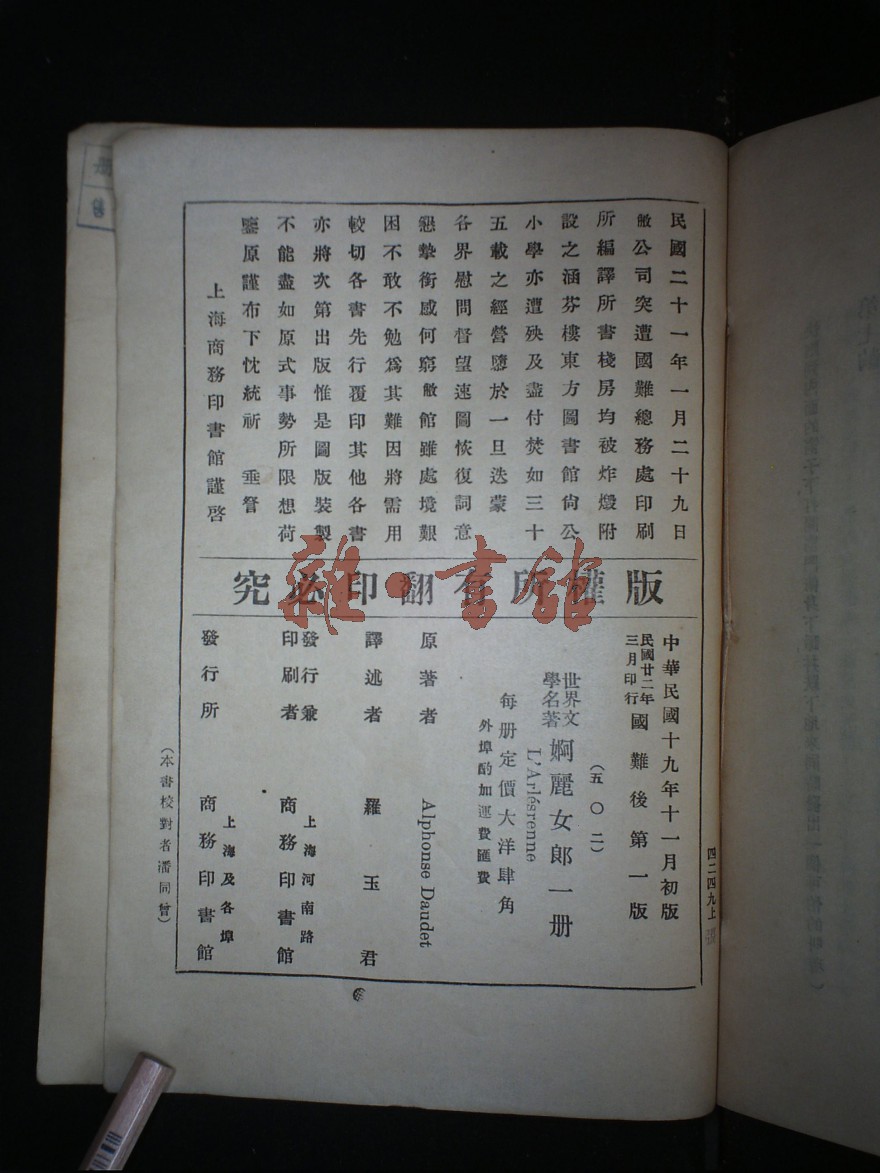 民國二十一年一月二十九日
敝公司突遭國難總務處印刷
所編譯所書棧房均被炸燬附
設之涵芬樓東方圖書館尙公
小學亦遭殃及盡付焚如三十
五載之經營隳於一旦迭蒙
各界慰問督望速圖恢復詞意
懇摯銜感何窮敝館雖處境艱
困不敢不勉爲其難因將需用
較切各書先行覆印其他各書
亦將次第出版惟是圖版裝製
不能盡如原式事勢所限想荷
鑒原謹布下忱統祈 垂詧
上海商務印書館謹啓
版權所有翻印必究
雜·書館
中華民國十九年十一月初版
民國廿二年三月印行 國難後第一版
(五〇二)
世界文學名著 婀麗女郎一册
L'Arlésrenne
每册定價大洋肆角
外埠酌加運費匯費
原著者 Alphonse Daudet
譯述者 羅玉君
發行兼印刷者 上海河南路 商務印書館
發行所 上海及各埠 商務印書館
(本書校對者潘同曾)
四二四九上